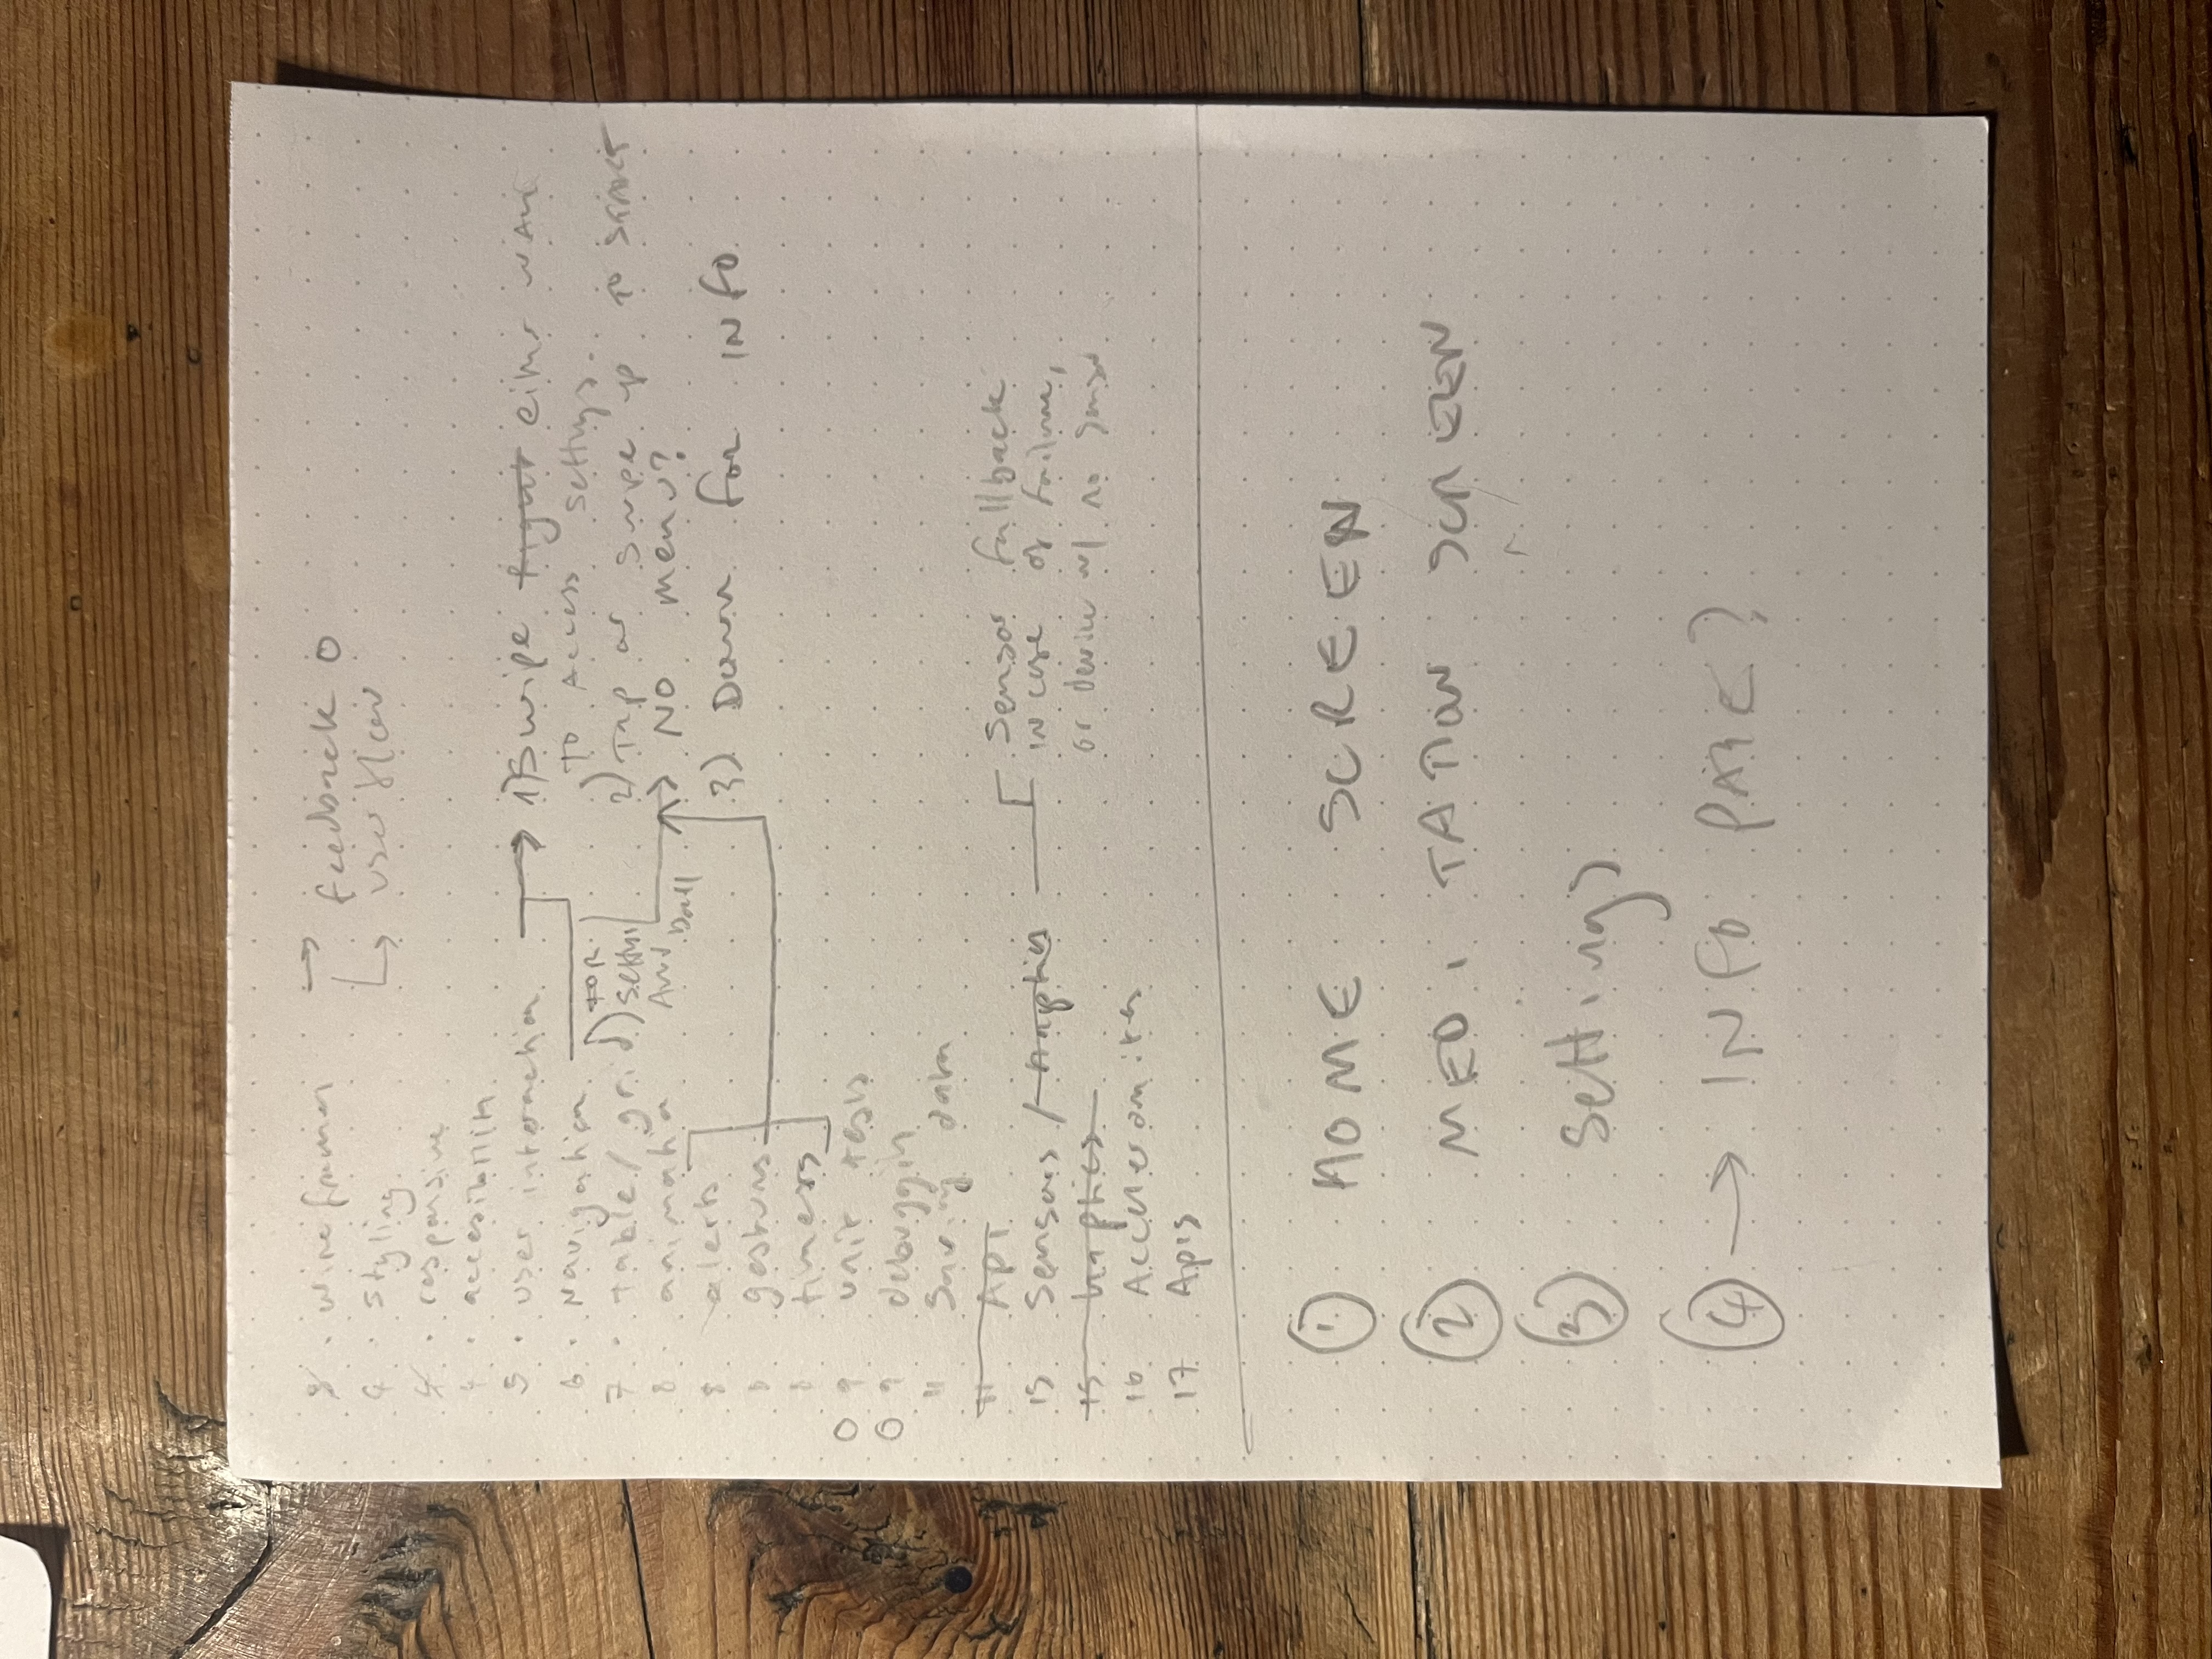 3 · wireframes → feedback O
4 · styling → user flow
4 · responsive
4 · accesibility
5 · user interaction → 1) Swipe right either way
to Access settings.
6 · Navigation
7 · table/grid) FOR settings And
2) Tap or swipe up to START
8 · animation
→ NO menu?
8 alerts
3) Down for INFO
8 gestures
8 timers
O 9 unit tests
O 9 debuggin
11 Saving data
11 API
15 Sensors / Haptics
Sensor fallback
in case of failure,
or device w/ no sensor
15 haptics
16 Accelerometer
17 Apis
1 HOME SCREEN
2 MEDITATION SCREEN
3 Settings
4 → INFO PAGE?